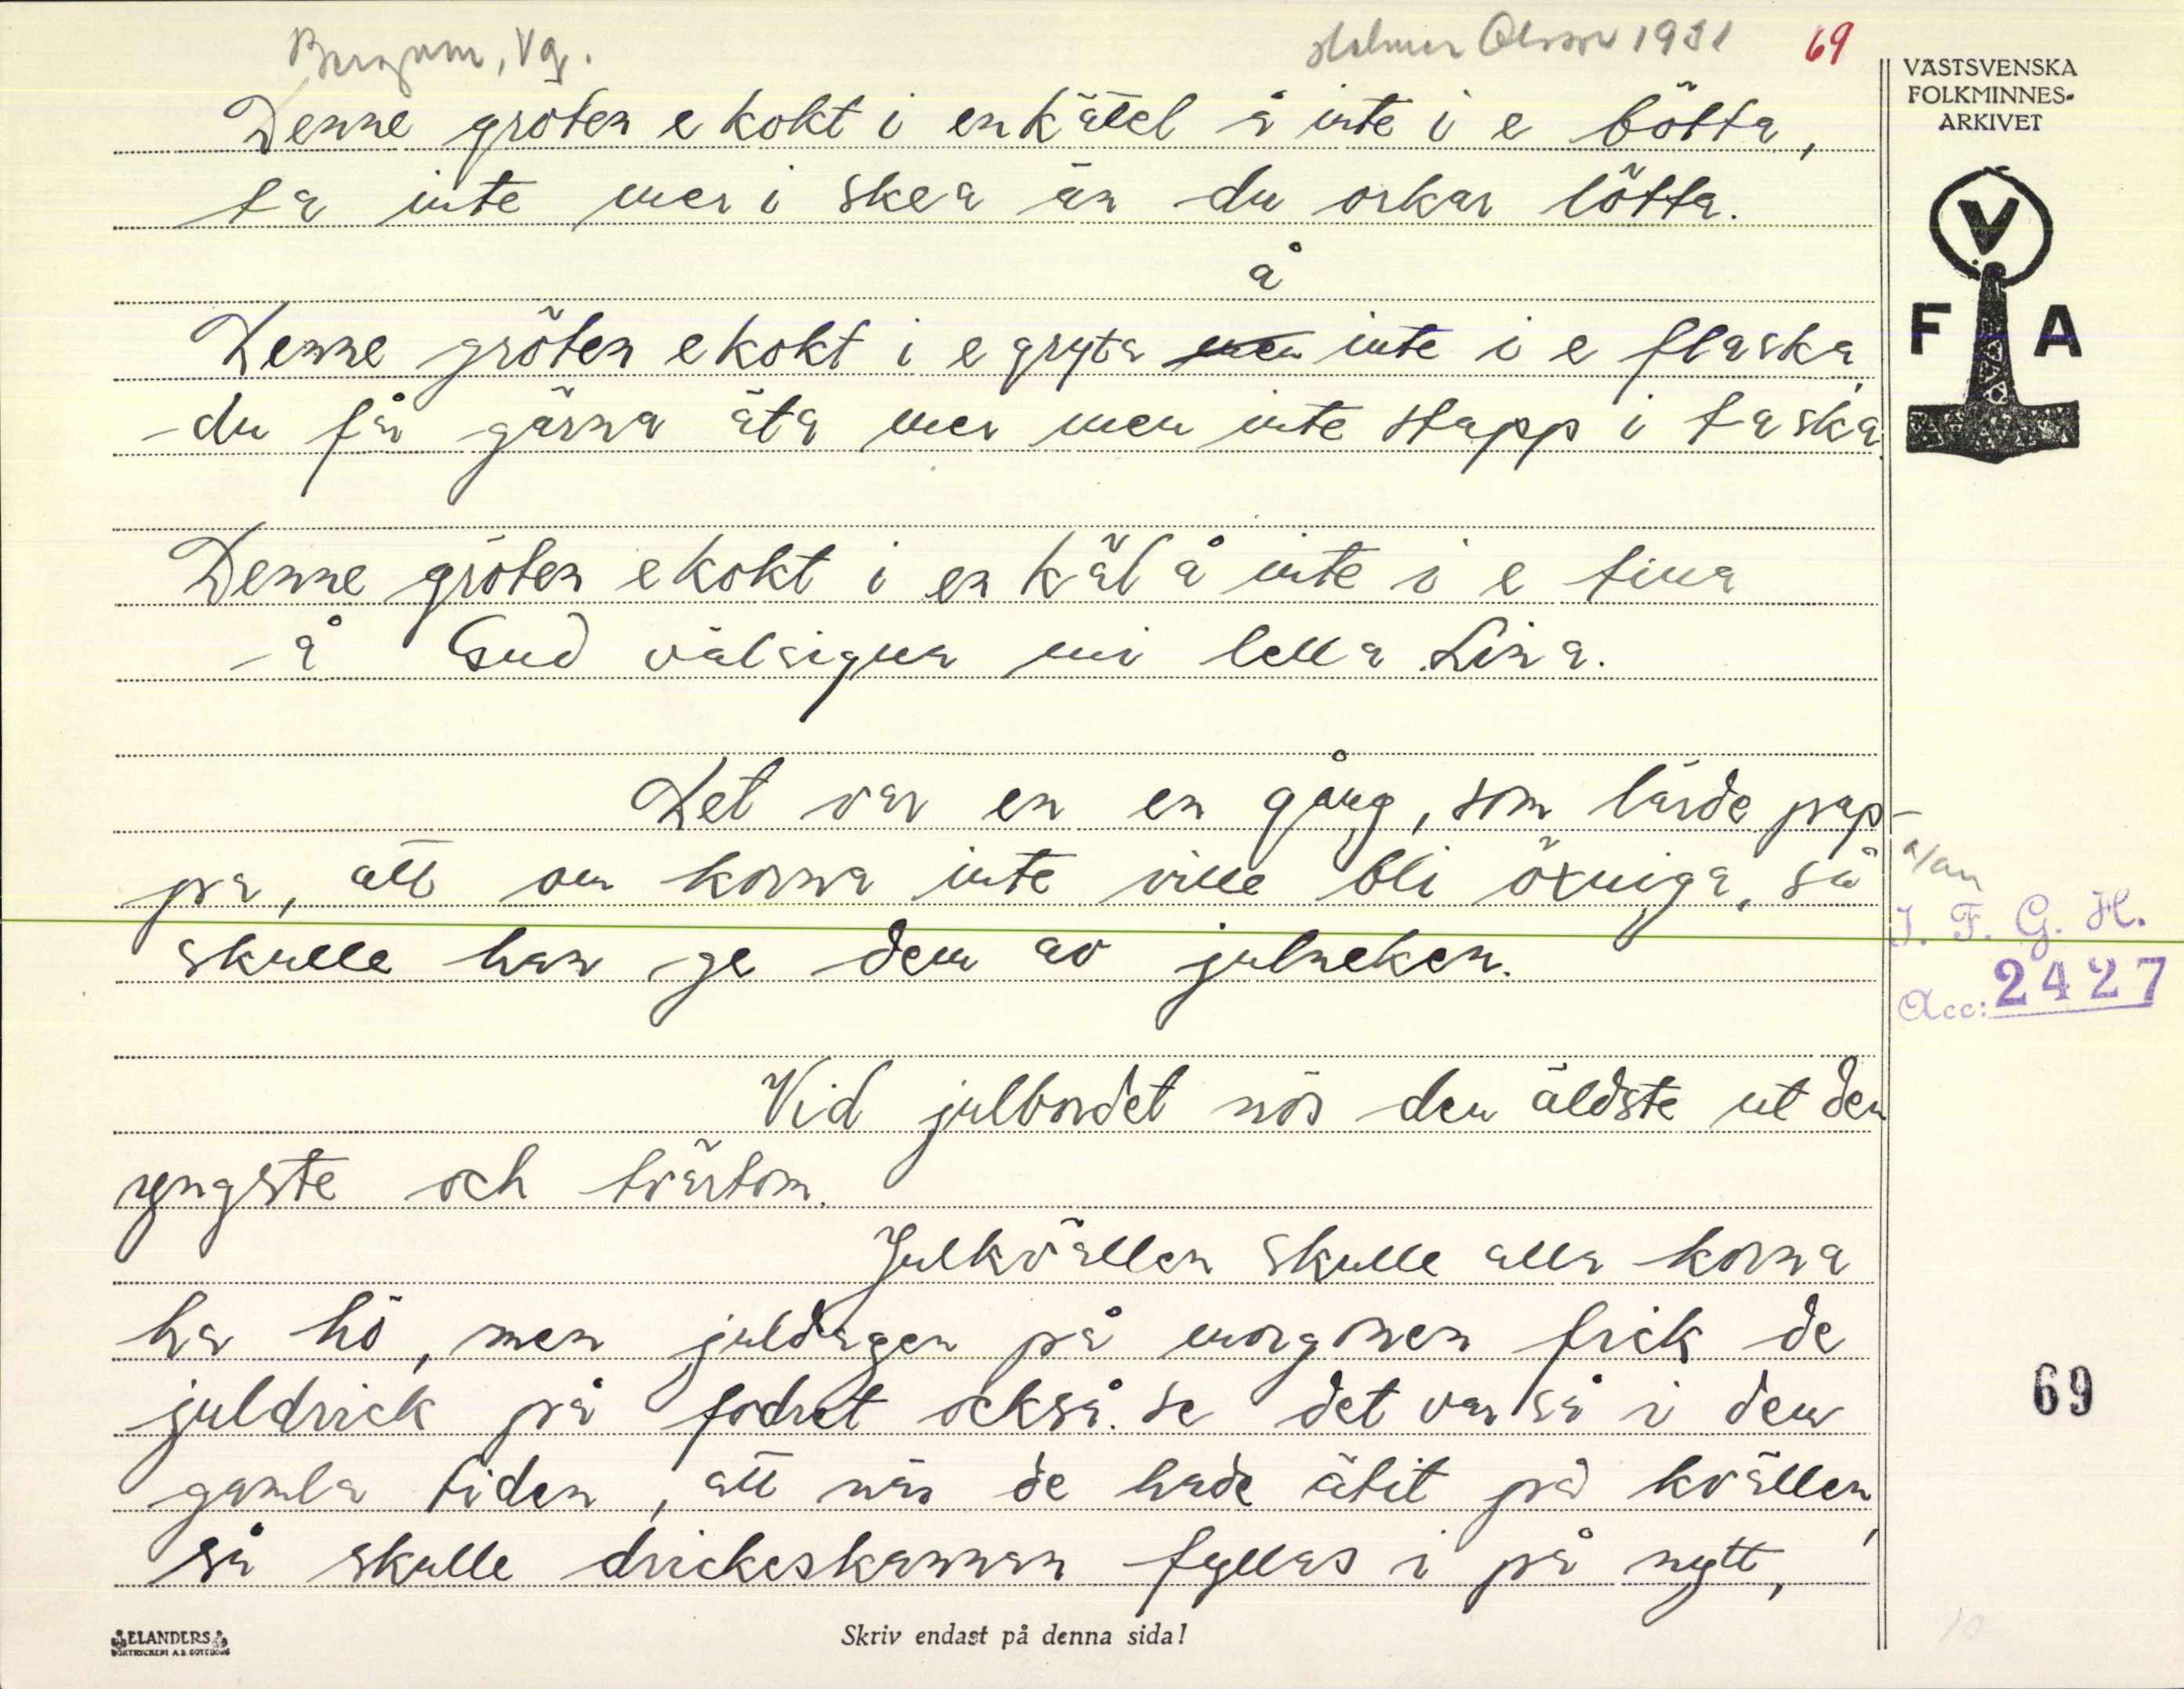 Bergum, Vg.
Helmer Olsson 1931
69
VÄSTSVENSKA
FOLKMINNES-
ARKIVET
V
F A
Denne gröten e kokt i en kättel å inte i e bötta,
ta inte mer i skea än du orkar lötta.
å
Denne gröten e kokt i e gryta men inte i e flaska,
du får gärna äta mer men inte stapp i taska.
Denne gröten e kokt i en käl å inte i e tina
å Gud välsigna mi lella Lina.
Det var en en gång, som lärde pap-
pa, att om korna inte ville bli öxniga, så
skulle han ge dem av julneken.
Vid julbordet nös den äldste ut den
yngste och tvärtom.
Julkvällen skulle alla korna
ha hö, men juldagen på morgonen fick de
juldrick på fodret också. Se det var så i den
gamla tiden, att när de hade ätit på kvällen,
så skulle drickeskannan fyllas i på nytt,
I. F. G. H.
Acc: 2427
69
ELANDERS
BOKTRYCKERI A.B. GÖTEBORG
Skriv endast på denna sida!
10